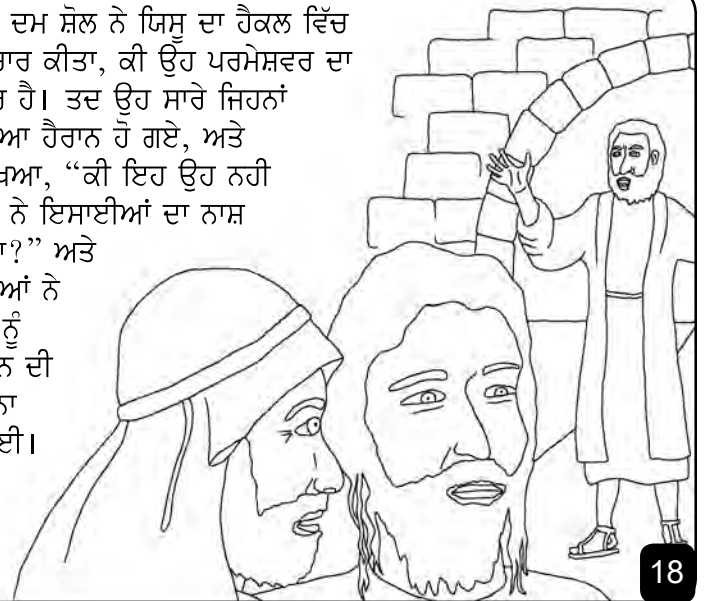 ਦਮ ਸ਼ੋਲ ਨੇ ਯਿਸੂ ਦਾ ਹੈਕਲ ਵਿੱਚ
ਕੀਤਾ, ਕੀ ਉਹ ਪਰਮੇਸ਼ਵਰ ਦਾ
ਹੈ। ਤਦ ਉਹ ਸਾਰੇ ਜਿਹਨਾਂ
ਹੈਰਾਨ ਹੋ ਗਏ, ਅਤੇ
“ਕੀ ਇਹ ਉਹ ਨਹੀ
ਨੇ ਇਸਾਈਆਂ ਦਾ ਨਾਸ਼
?” ਅਤੇ
ਨੇ
ਨੂੰ
ਦੀ
18